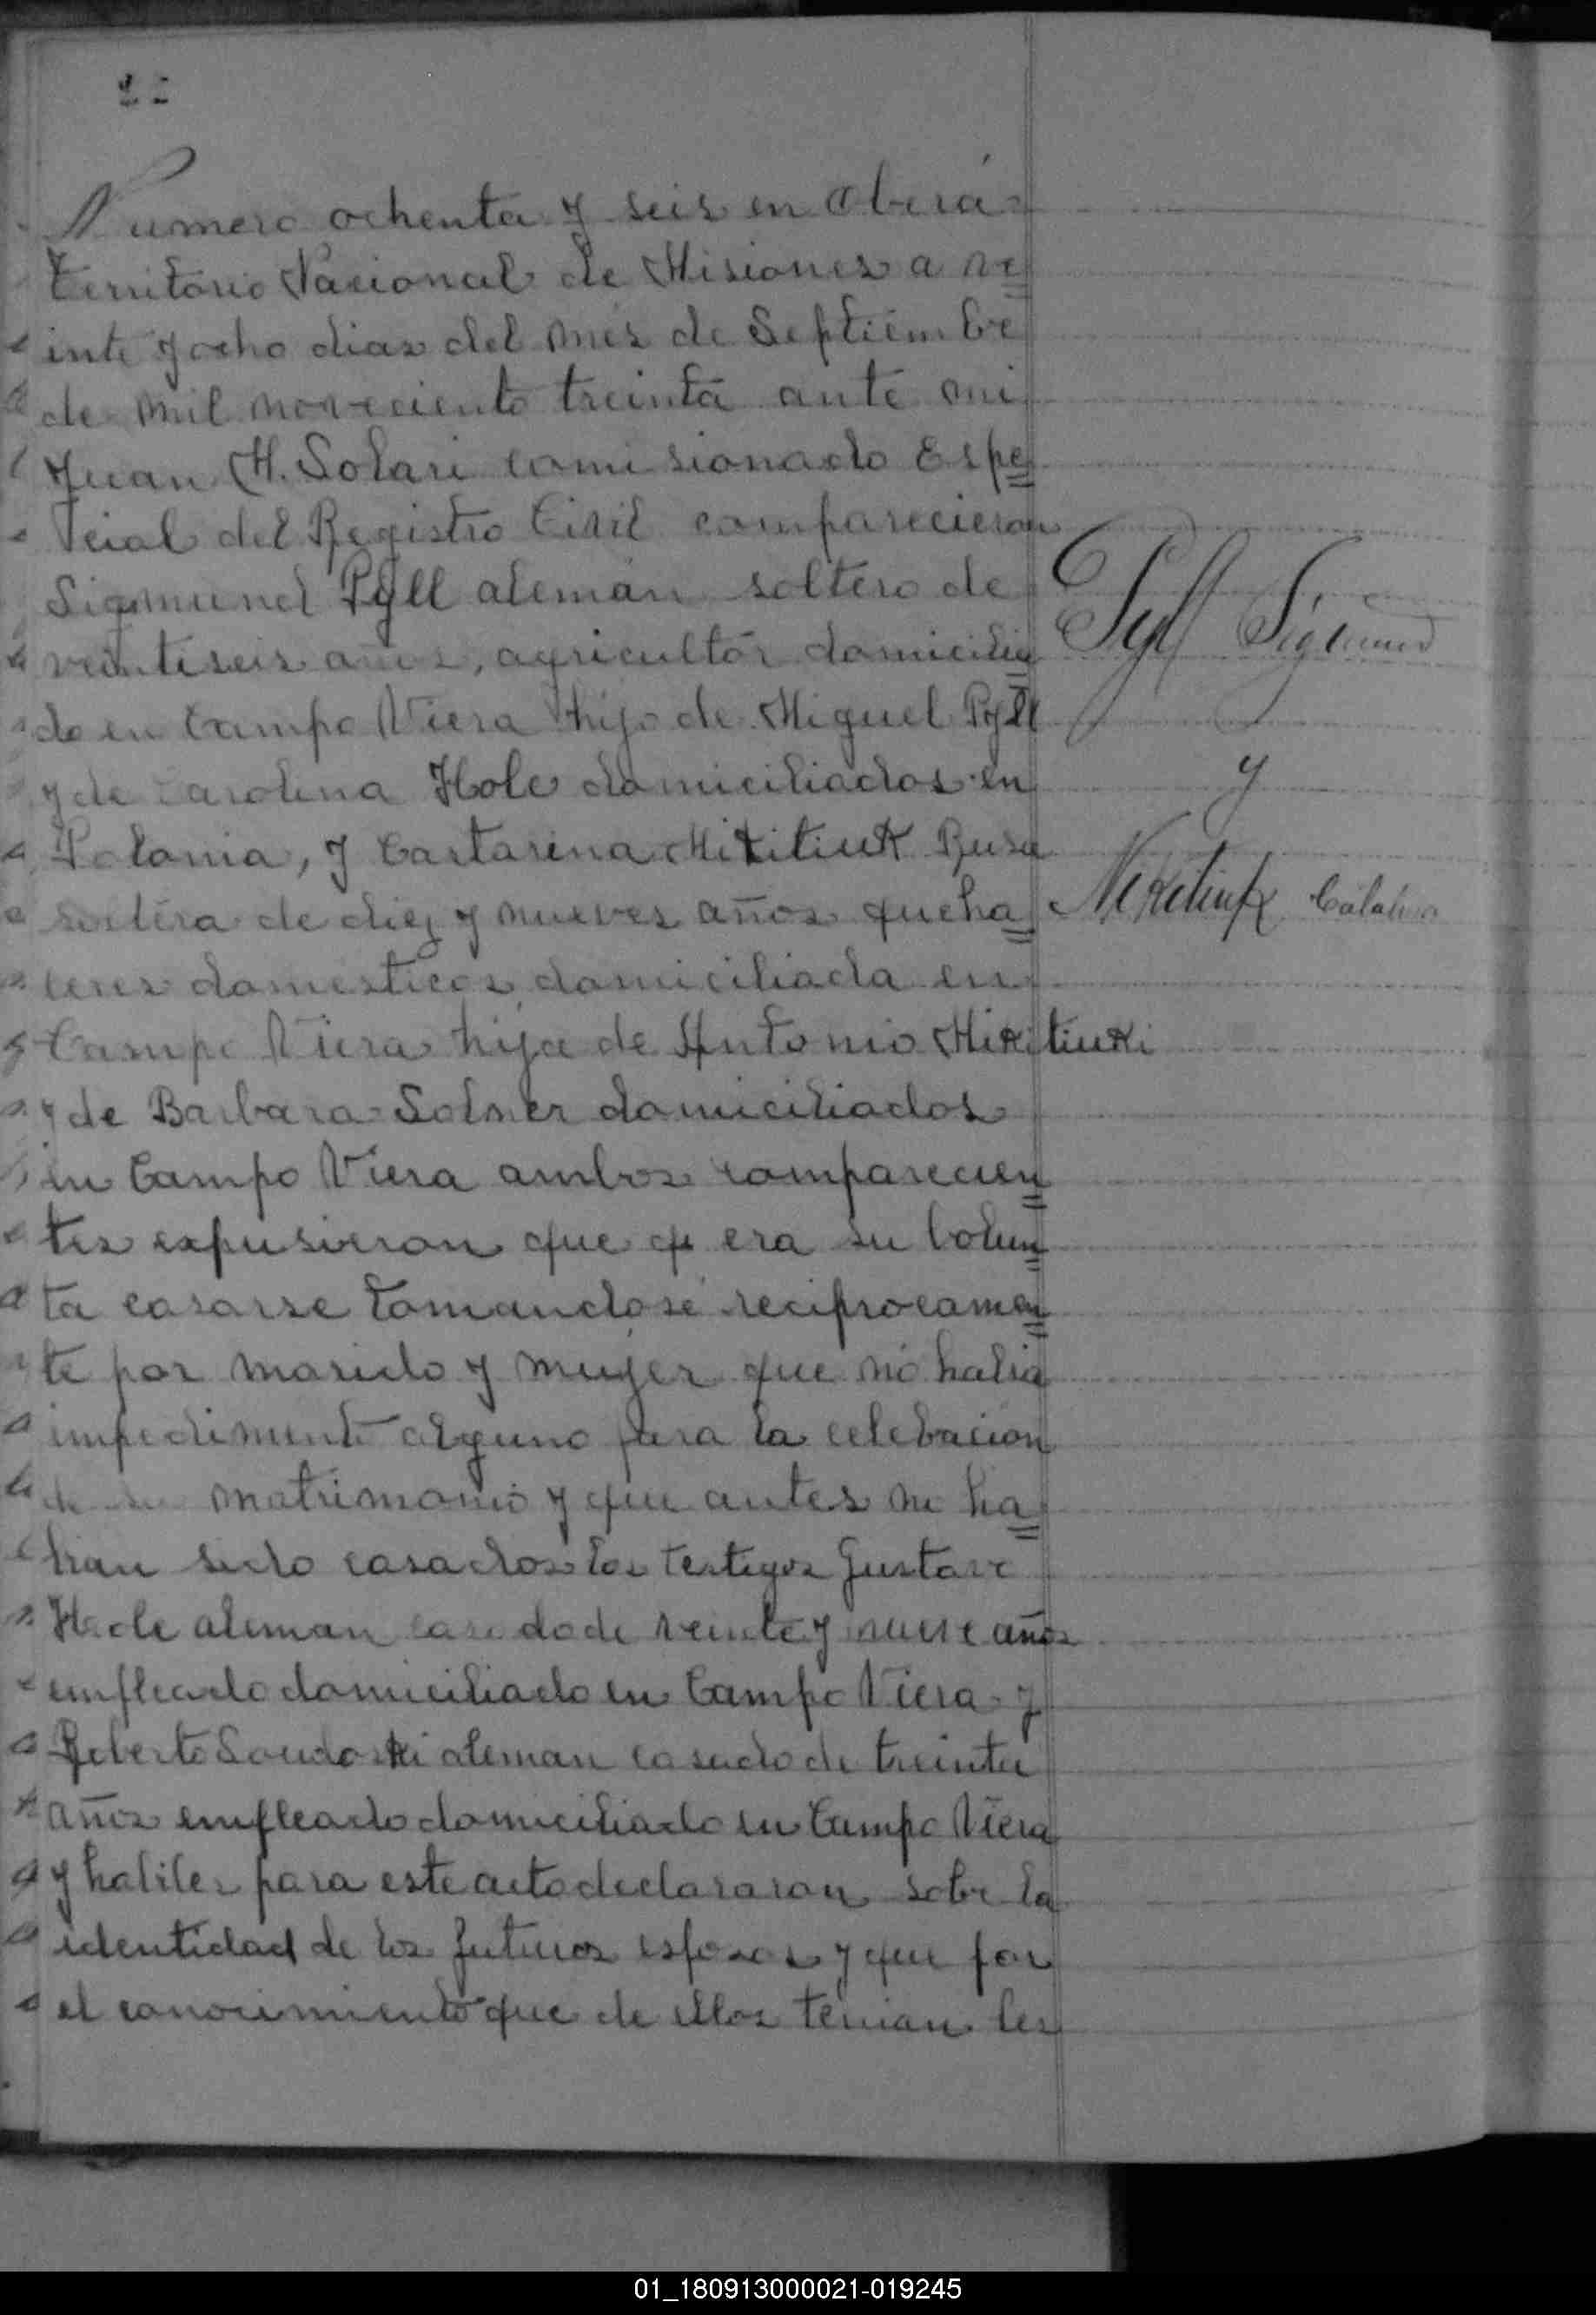 Numero ochenta y seis en Oberá
territorio Nacional de Misiones a ve
inte y ocho dias del mes de Septiembre
de mil noveciento treinta ante mi
Juan H. Solari comisionado Espe
cial del Registro Civil comparecieron
Sigmund Pyll alemán soltero de
veintiseis años, agricultor domicilia
do en Campo Viera hijo de Miguel Pyll
y de Carolina Hole domiciliados en
Polonia, y Cartarina Mikitiuk Rusa
soltera de diez y nueves años queha
ceres domesticos domiciliada en
Campo Viera hija de Antonio Mikitiuki
y de Barbara Solner domiciliados
en Campo Viera ambos comparecien
tes expusieron que era su bolun
ta casarse tomandose reciprocamen
te por marido y mujer que no habia
impedimento alguno para la celebacion
de su matrimonio y que antes no ha
bian sido casados los testigos Gustavo
Hole aleman casado de veinte y nueve años
empleado domiciliado en Campo Viera y
Roberto aleman casado de treinta
años empleado domiciliado en Campo Viera
y habiles para este acto declararon sobre la
identidad de los futuros esposos y que por
el conocimiento que de ellos tenian les
Pyll Sigmund
y
Nikitiuk Catalina
01_180913000021-019245